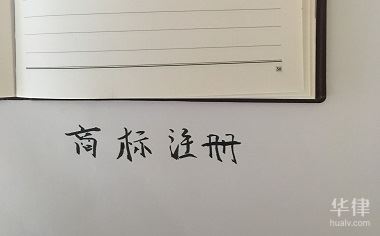 商标注册
华律
hualv.com